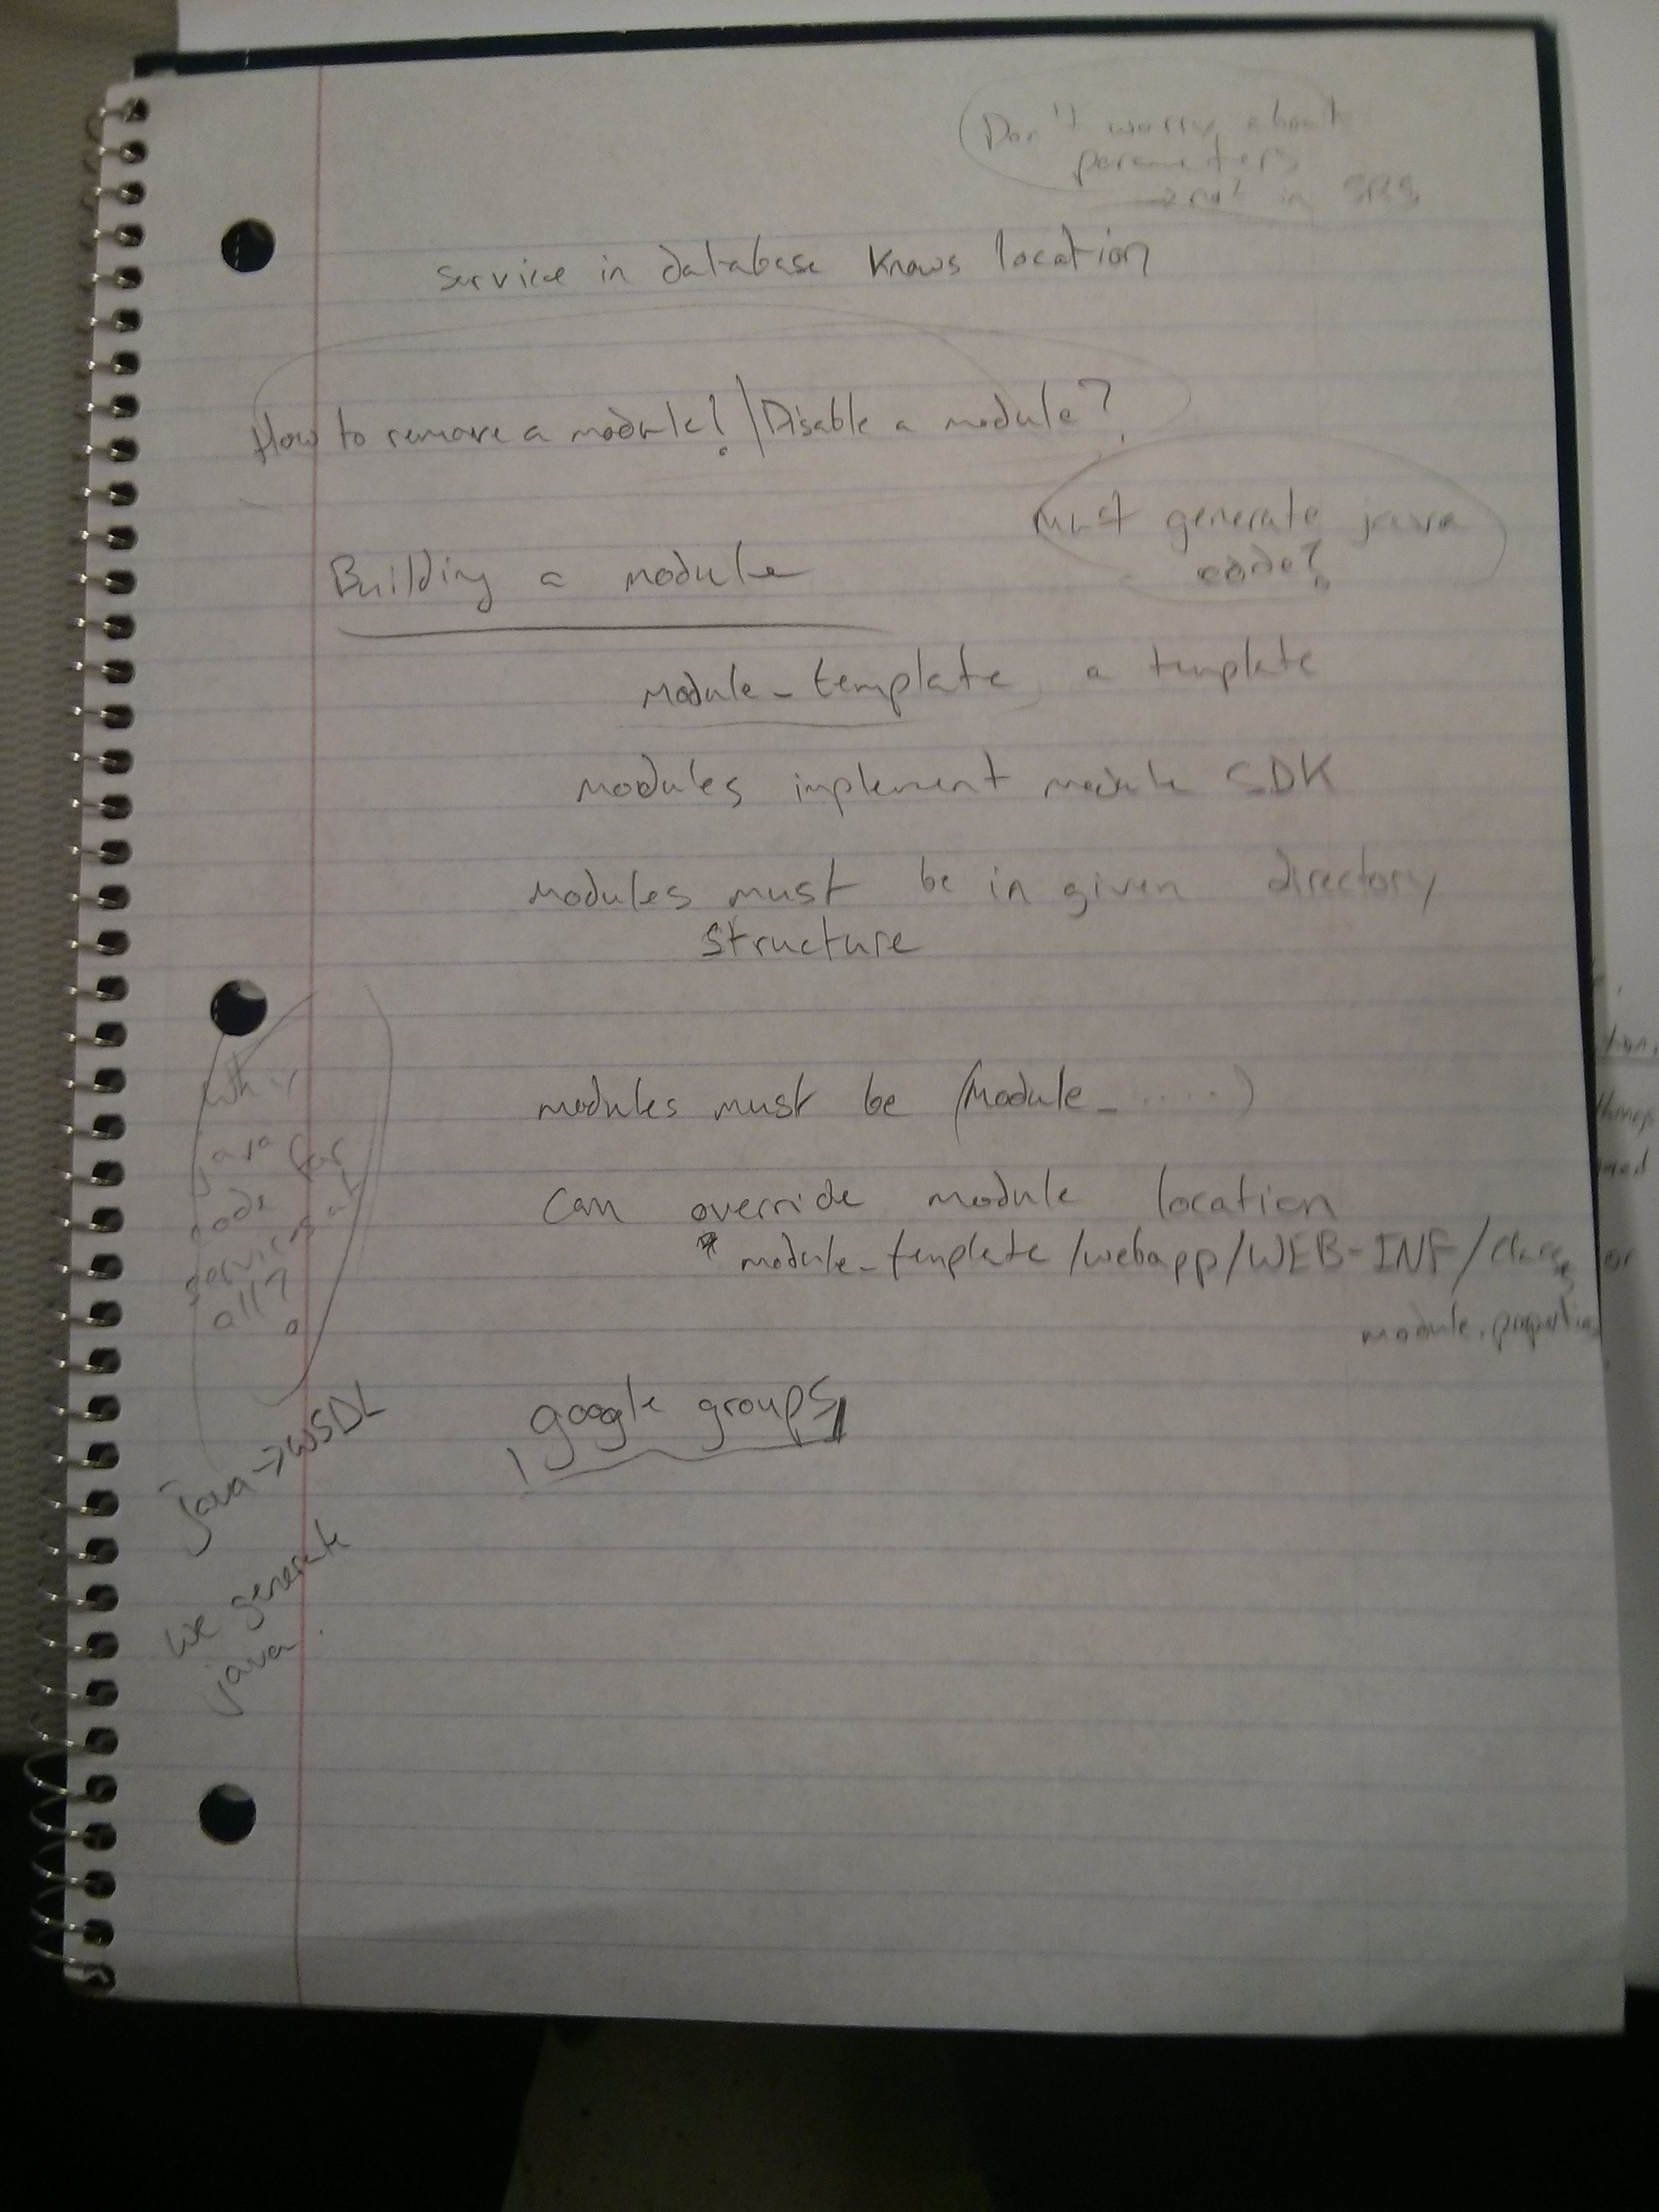 Don't worry about
parameters
→ not in SRS
service in database knows location
How to remove a module? / Disable a module?
must generate java
code?
Building a module
module_template, a template
modules implement module SDK
modules must be in given directory
structure
modules must be (module_.....)
can override module location
* module_template/webapp/WEB-INF/classes
module.properties
google groups
why
java
code for
services at
all?
java → WSDL
we generate
java.